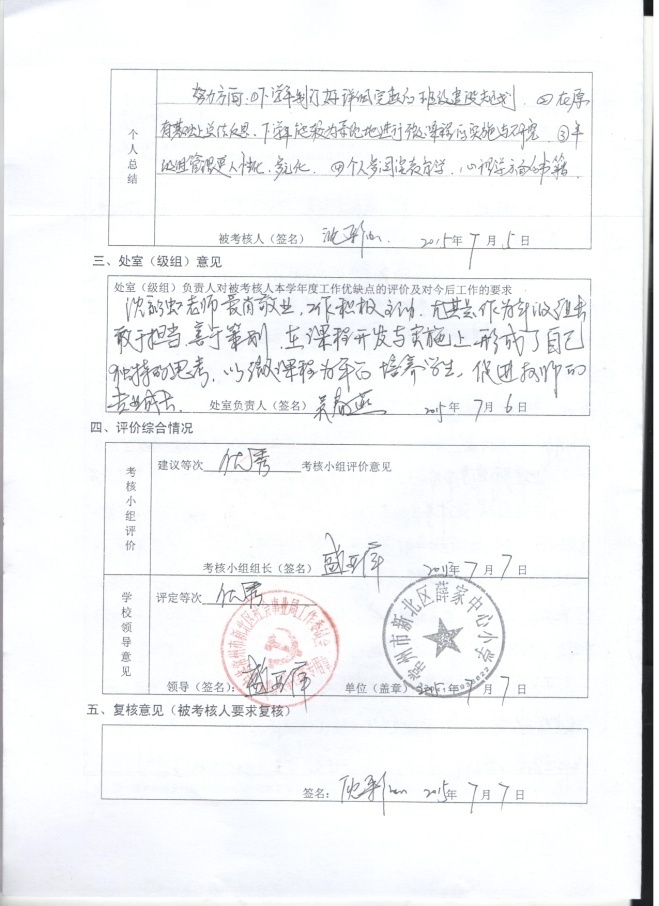 个人总结
努力方面：①下学年制订好详细完整的班级建设规划 ②在原
有基础上总结反思，下学年能较为系统地进行微课程的实施与研究 ③年
级进管理更人性化、多元化 ④个人多阅读教育学、心理学方面的书籍.
被考核人（签名） 2015年7月5日
三、处室（级组）意见
处室（级组）负责人对被考核人本学年度工作优缺点的评价及对今后工作的要求
老师爱岗敬业，工作积极主动，尤其是作为年级组长
敢于担当，善于策划，在课程开发与实施上形成了自己
独特的思考，以微课程为平台 培养学生，促进教师的
专业成长.
处室负责人（签名）吴春燕 2015年7月6日
四、评价综合情况
考核小组评价
建议等次 优秀 考核小组评价意见
考核小组组长（签名） 2015年7月7日
学校领导意见
评定等次 优秀
常州市新北区薛家中心小学
领导（签名）： 单位（盖章）2015年7月7日
五、复核意见（被考核人要求复核）
签名： 2015年7月7日